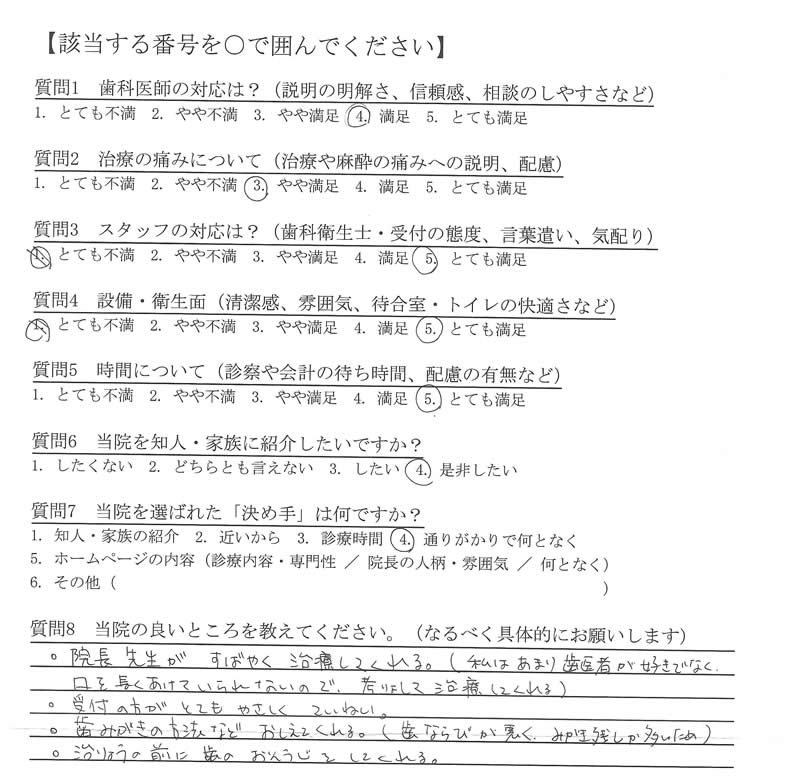 【該当する番号を○で囲んでください】
質問1 歯科医師の対応は？（説明の明解さ、信頼感、相談のしやすさなど）
1. とても不満 2. やや不満 3. やや満足 4. 満足 5. とても満足
質問2 治療の痛みについて（治療や麻酔の痛みへの説明、配慮）
1. とても不満 2. やや不満 3. やや満足 4. 満足 5. とても満足
質問3 スタッフの対応は？（歯科衛生士・受付の態度、言葉遣い、気配り）
1. とても不満 2. やや不満 3. やや満足 4. 満足 5. とても満足
質問4 設備・衛生面（清潔感、雰囲気、待合室・トイレの快適さなど）
1. とても不満 2. やや不満 3. やや満足 4. 満足 5. とても満足
質問5 時間について（診察や会計の待ち時間、配慮の有無など）
1. とても不満 2. やや不満 3. やや満足 4. 満足 5. とても満足
質問6 当院を知人・家族に紹介したいですか？
1. したくない 2. どちらとも言えない 3. したい 4. 是非したい
質問7 当院を選ばれた「決め手」は何ですか？
1. 知人・家族の紹介 2. 近いから 3. 診療時間 4. 通りがかりで何となく
5. ホームページの内容（診療内容・専門性 ／ 院長の人柄・雰囲気 ／ 何となく）
6. その他（ ）
質問8 当院の良いところを教えてください。（なるべく具体的にお願いします）
○ 院長先生が すばやく 治療してくれる。（私はあまり歯医者が好きでなく、
口を長くあけていられないので、考りょして治療してくれる）
○ 受付の方が とても やさしく ていねい。
○ 歯みがきの方法など おしえてくれる。（歯ならびが悪く、みがき残しが多いため）
○ 治りょうの前に歯の おそうじを してくれる。